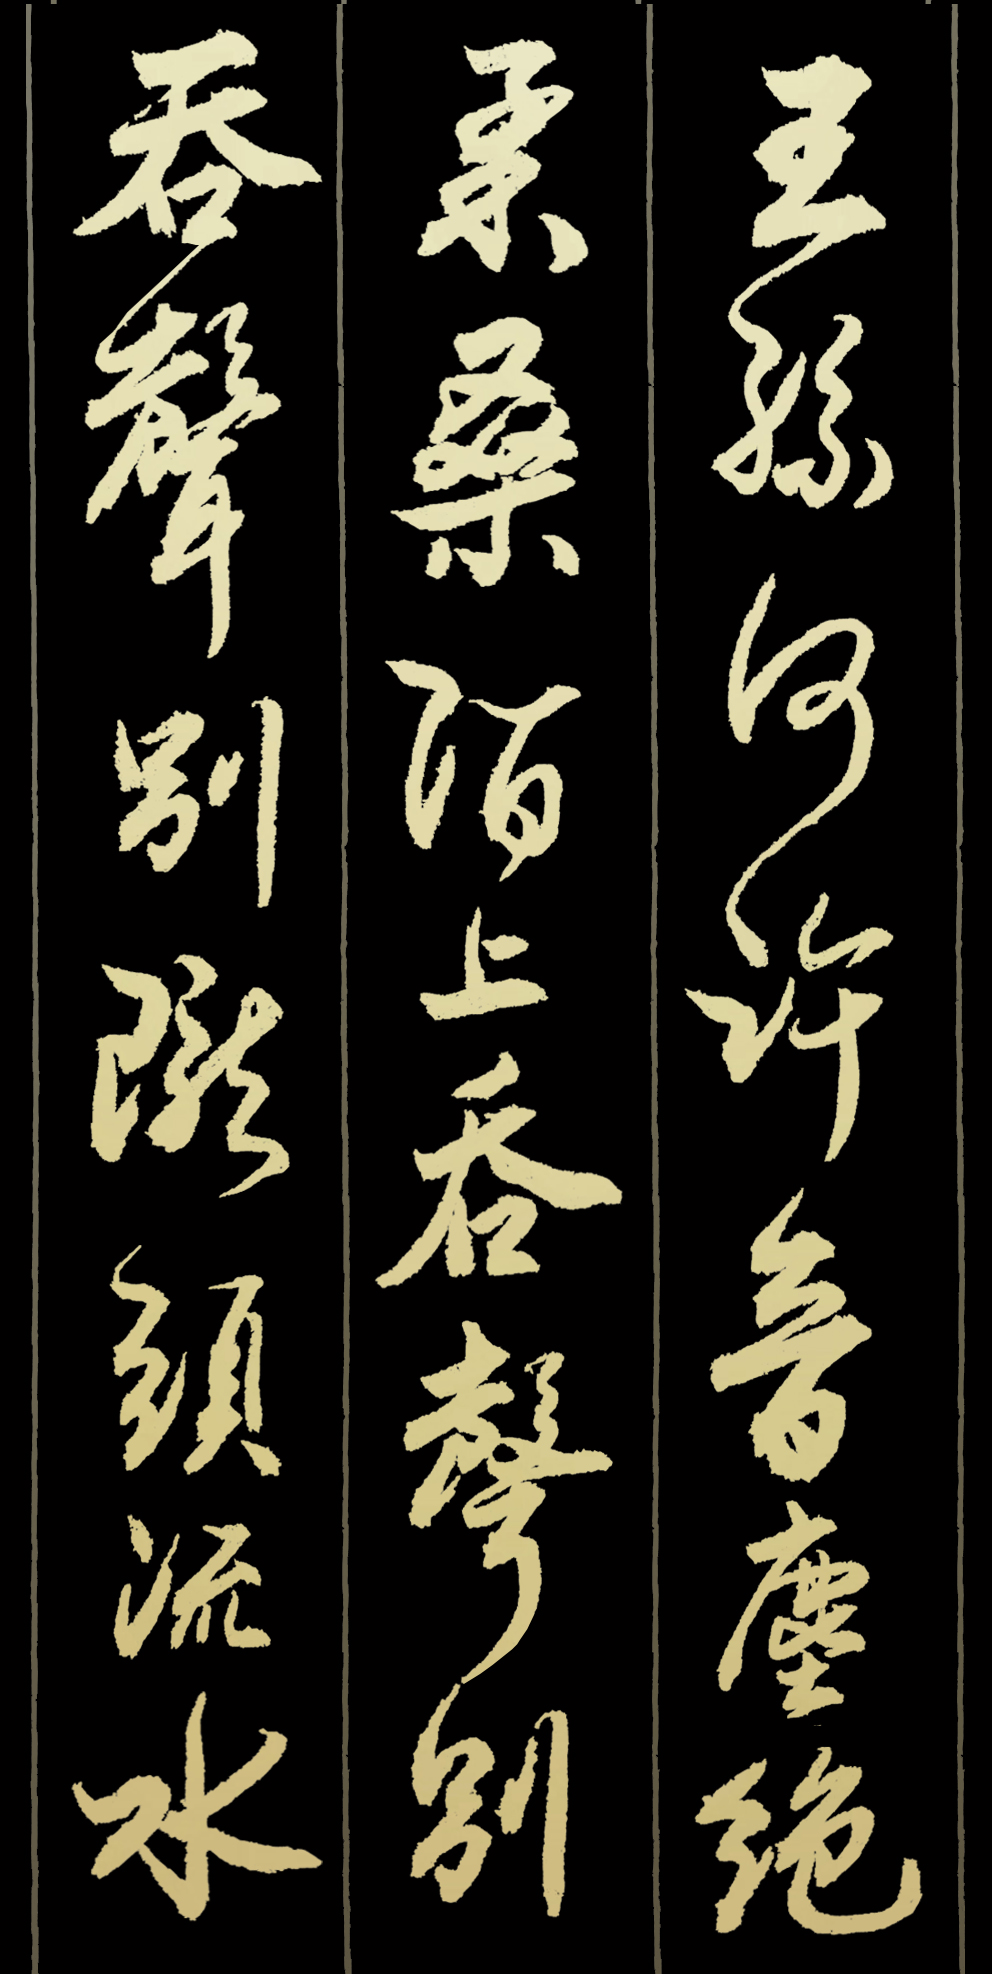 王孫何許音塵絕
柔桑陌上吞聲別
吞聲別隴頭流水